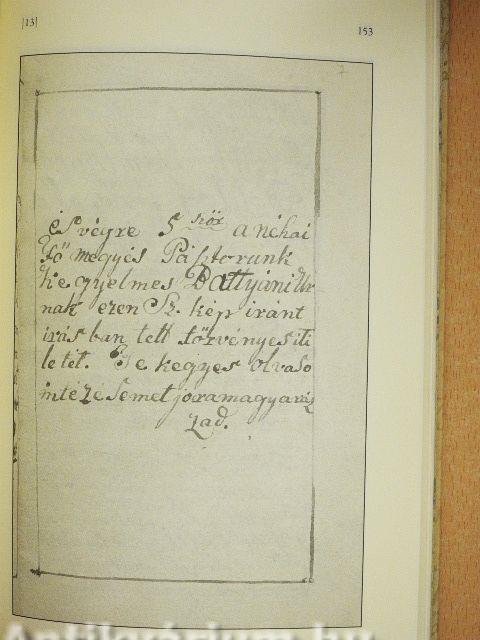 |13|
153
És végre 5 ször a néhai
Fő megyés Pásztorunk
kegyelmes Battyáni Ur
nak ezen Sz. kép iránt
irásban tett törvényes iti
letét. Te kegyes olvaso
intézésemet jóra magyaráz
zad.
Antikvárium.hu